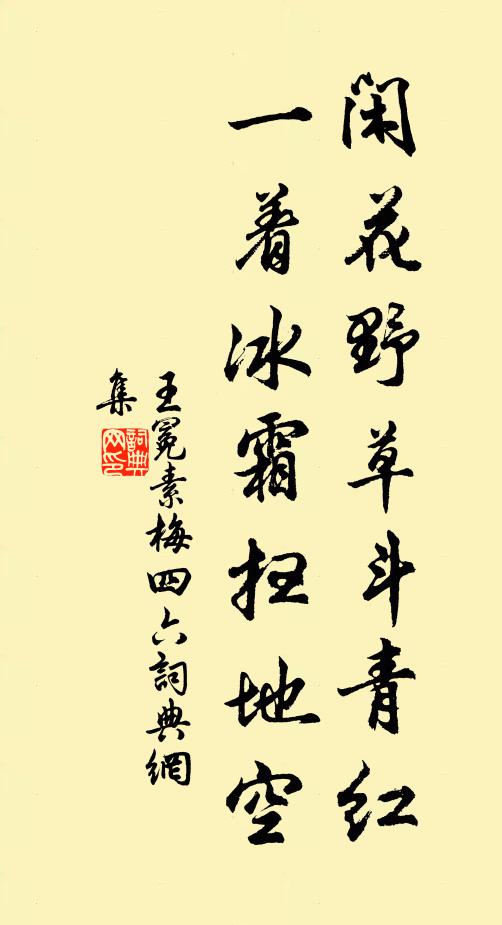 闲花野草斗青红
一着冰霜扫地空
王冕素梅四六詞典網
集
詞典网印